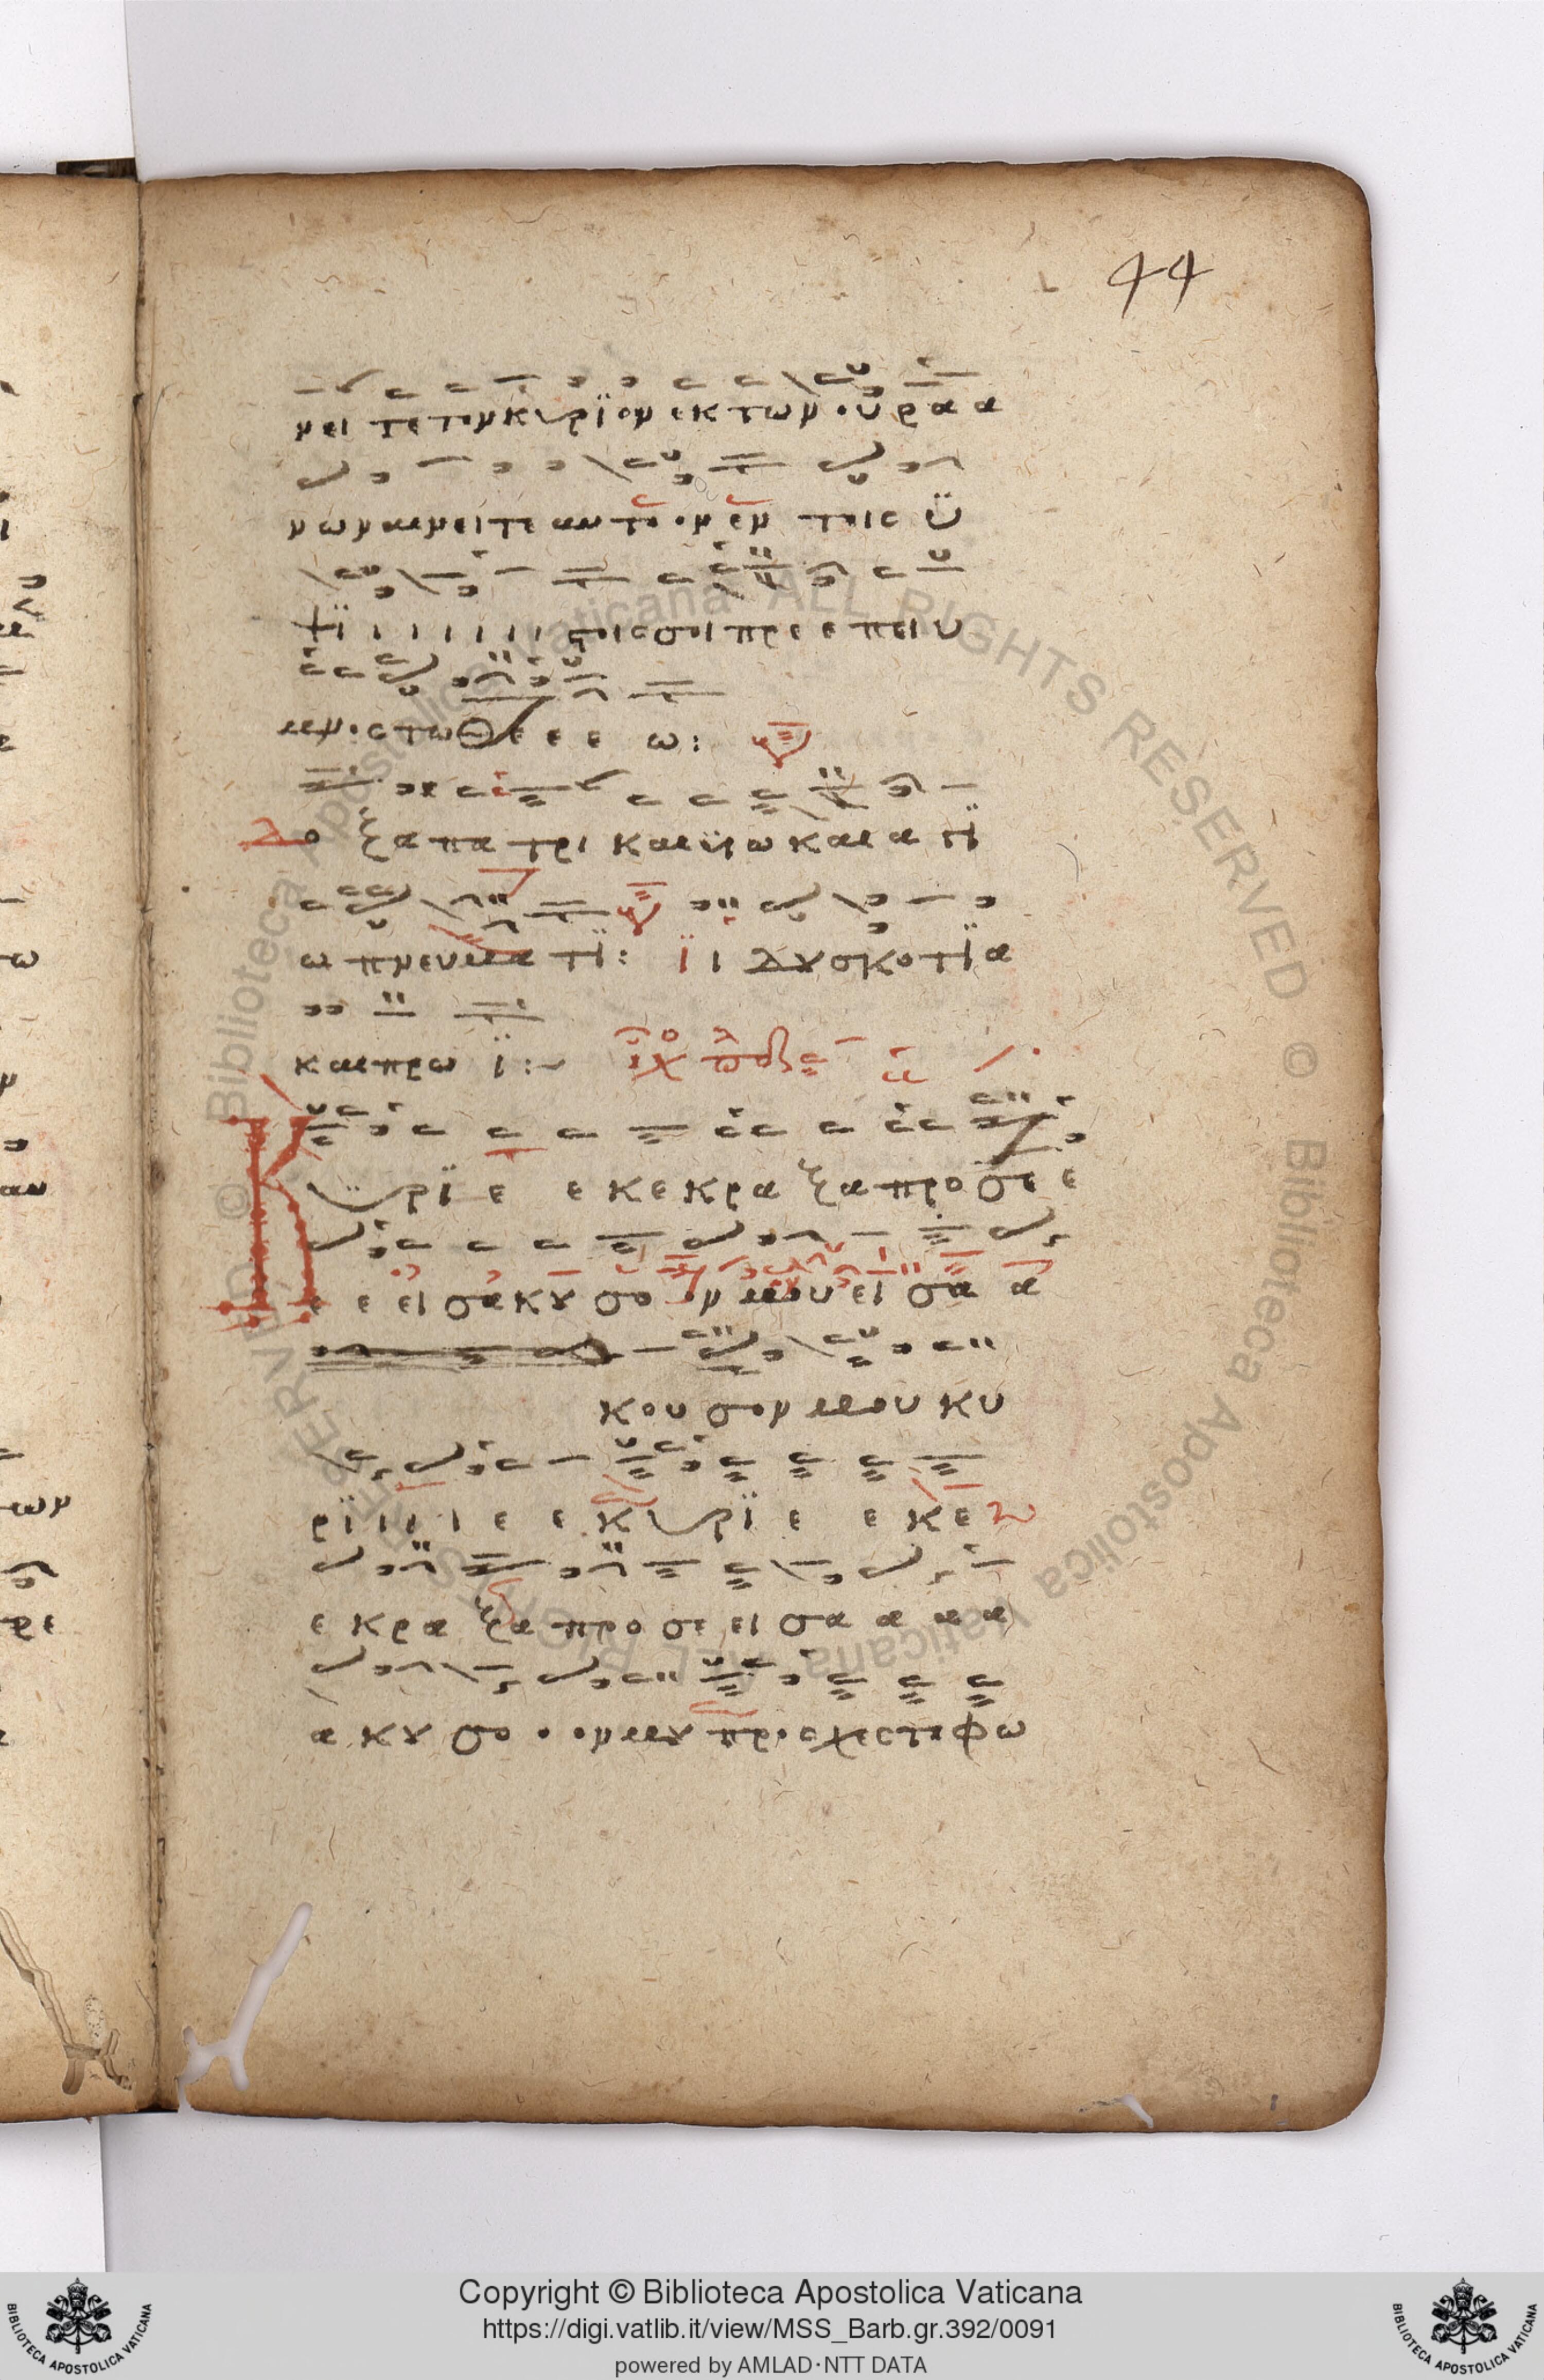 44
νει τε τον κυ ρϊ ον εκ των ου ρα α
νων αι νει τε αυ το ον εν τοις ϋ
ψϊ ι ι ι ι ι ι τοις σοι πρε ε πει υ
μνος τω Θε ε ε ω:
Δο ξα πα τρι και υι ω και α γϊ
ω πνευ μα τϊ: ϊ ι δου σκο τϊ α
και πρω ϊ:~
Κυ ρϊ ε ε κε κρα ξα προ σε ε
ε ε ει σα κου σο ον μου ει σα α
κου σον μου κυ
ρϊ ι ι ι ε ε κυ ρϊ ε ε κε
ε κρα ξα προ σε ει σα α α α
α κου σο ο ον μου προσχες τη φω
Copyright © Biblioteca Apostolica Vaticana
https://digi.vatlib.it/view/MSS_Barb.gr.392/0091
powered by AMLAD·NTT DATA
BIBLIOTECA APOSTOLICA VATICANA
BIBLIOTECA APOSTOLICA VATICANA
© Biblioteca Apostolica Vaticana ALL RIGHTS RESERVED © Biblioteca Apostolica Vaticana ALL RIGHTS RESERVED